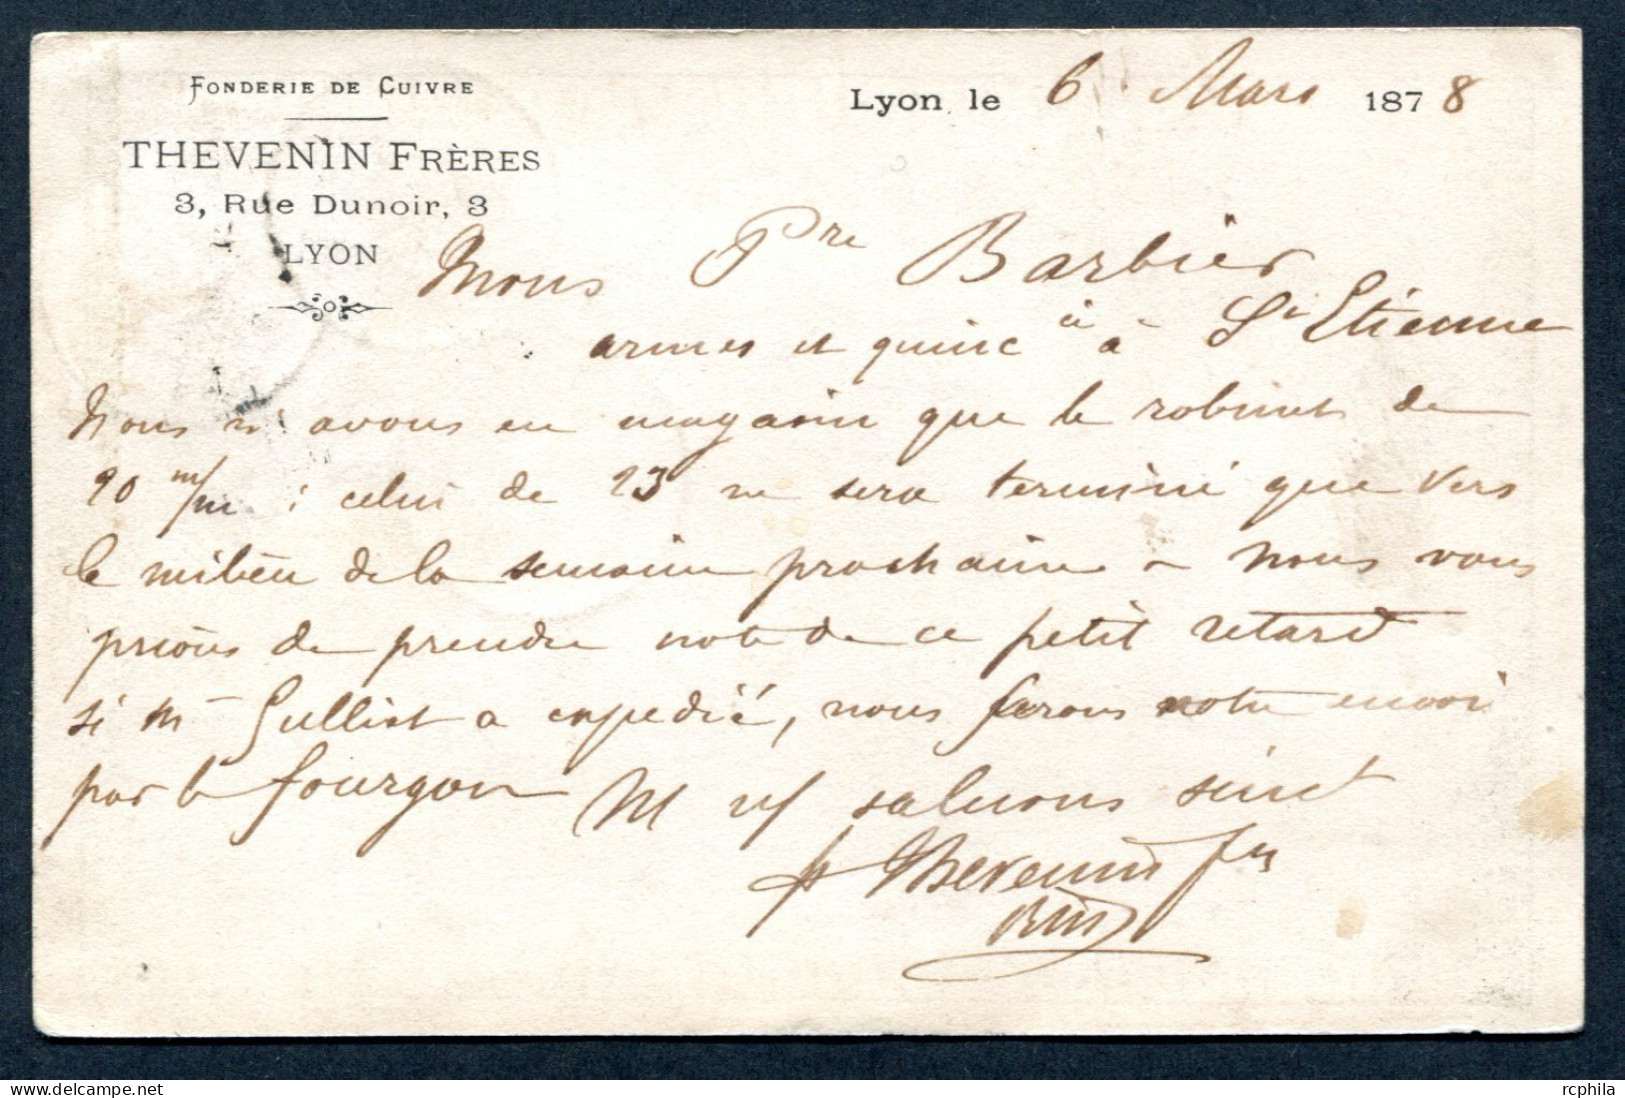 FONDERIE DE CUIVRE
Lyon, le 6 Mars 1878
THEVENIN FRÈRES
3, Rue Dunoir, 3
LYON
Mons Pre Barbier
armes et quinc à St Etienne
Nous n'avons en magasin que le robinet de
20 m/m : celui de 23 ne sera terminé que vers
le milieu de la semaine prochaine - Nous vous
prions de prendre note de ce petit retard
si Mr Gulliat a expedié, nous ferons notre envoi
par le fourgon M vs saluons sinct
pr Thevenin frs
rcphila.com